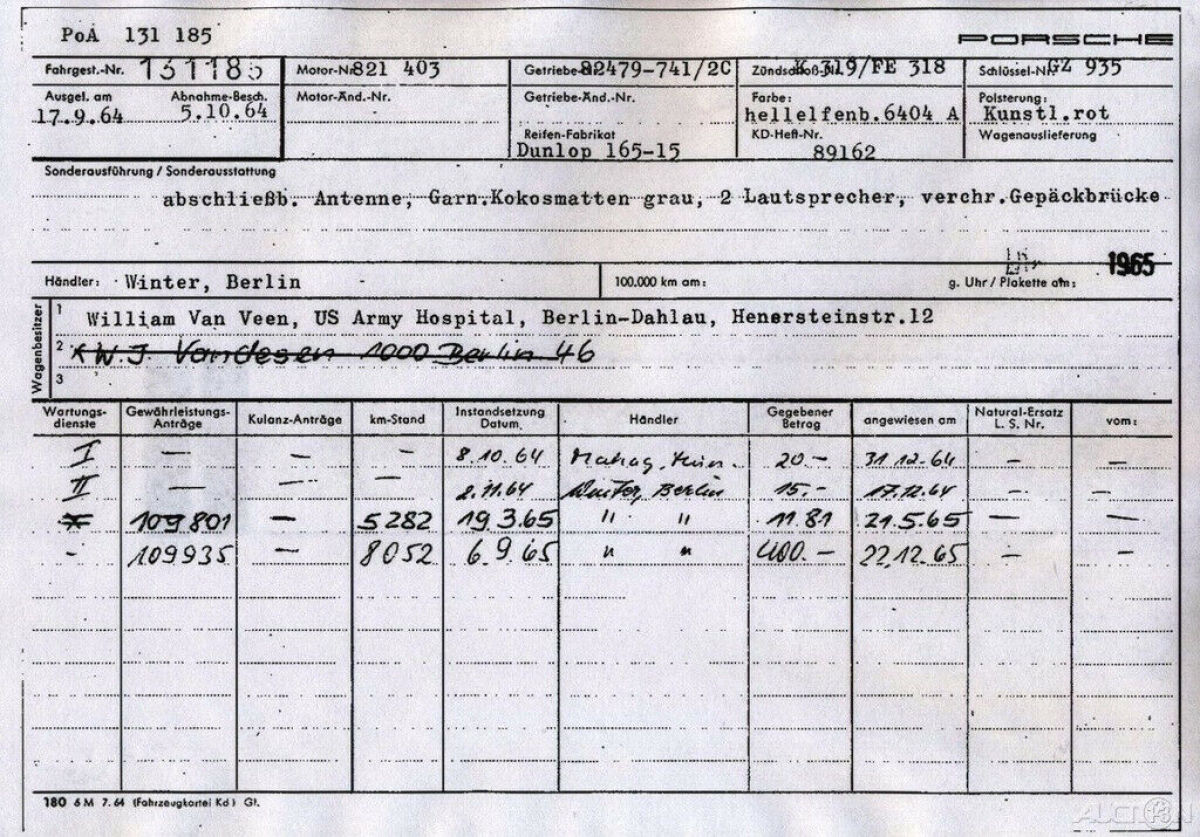 PoA 131 185
PORSCHE
Fahrgest.-Nr. 131185 Motor-Nr. 821 403 Getriebe-Nr. 82479-741/2C Zündschloß-Nr. K 319/FE 318 Schlüssel-Nr. GZ 935
Ausgel. am Abnahme-Besch. Motor-Änd.-Nr. Getriebe-Änd.-Nr. Farbe: Polsterung:
17.9.64 5.10.64 hellelfenb.6404 A Kunstl.rot
Reifen-Fabrikat KD-Heft-Nr. Wagenauslieferung
Dunlop 165-15 89162
Sonderausführung / Sonderausstattung
abschließb. Antenne, Garn.Kokosmatten grau, 2 Lautsprecher, verchr.Gepäckbrücke
1965
Händler: Winter, Berlin 100.000 km am: g. Uhr / Plakette am:
Wagenbesitzer
1 William Van Veen, US Army Hospital, Berlin-Dahlau, Henersteinstr.12
2 W.J. Vandesen 1000 Berlin 46
3
Wartungs- Gewährleistungs- Kulanz-Anträge km-Stand Instandsetzung Händler Gegebener angewiesen am Natural-Ersatz vom:
dienste Anträge Datum Betrag L. S. Nr.
I — — — 8.10.64 20.— 31.12.64 — —
II — — — 2.11.64 Winter, Berlin 15.- 17.12.64 — —
109801 — 5282 19.3.65 " " 11.81 21.5.65 — —
- 109935 — 8052 6.9.65 " " 400.— 22.12.65 — —
180 6 M 7. 64 (Fahrzeugkartei Kd) Gt.
AUCTION